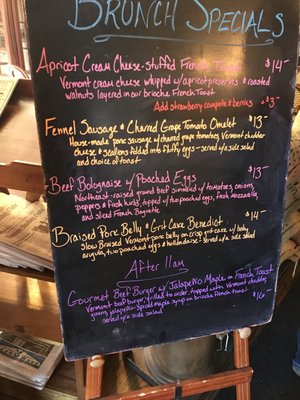 BRUNCH SPECIALS
Apricot Cream Cheese-stuffed French Toast $14-
Vermont cream cheese whipped w/ apricot preserves & roasted
walnuts layered in our brioche French Toast
Add strawberry compote & berries +$3-
Fennel Sausage & Charred Grape Tomato Omelet $13-
House-made pork sausage w/ charred grape tomatoes, Vermont cheddar
cheese & scallions folded into fluffy eggs - served w/ side salad
and choice of toast
Beef Bolognaise w/ Poached Eggs $13-
Northeast-raised ground beef simmered w/ tomatoes, onions,
peppers & fresh herbs, topped w/ two poached eggs, fresh mozzarella,
and sliced French Baguette
Braised Pork Belly & Grit Cake Benedict $14-
Slow Braised Vermont pork belly on crisp grit cake w/ baby
arugula, two poached eggs & hollandaise - served w/ side salad
After 11am
Gourmet Beef Burger w/ Jalapeño Maple on French Toast
Vermont beef burger, grilled to order, topped with Vermont cheddar
jalapeño-spiced maple syrup on brioche french toast $16-
served w/ a side salad